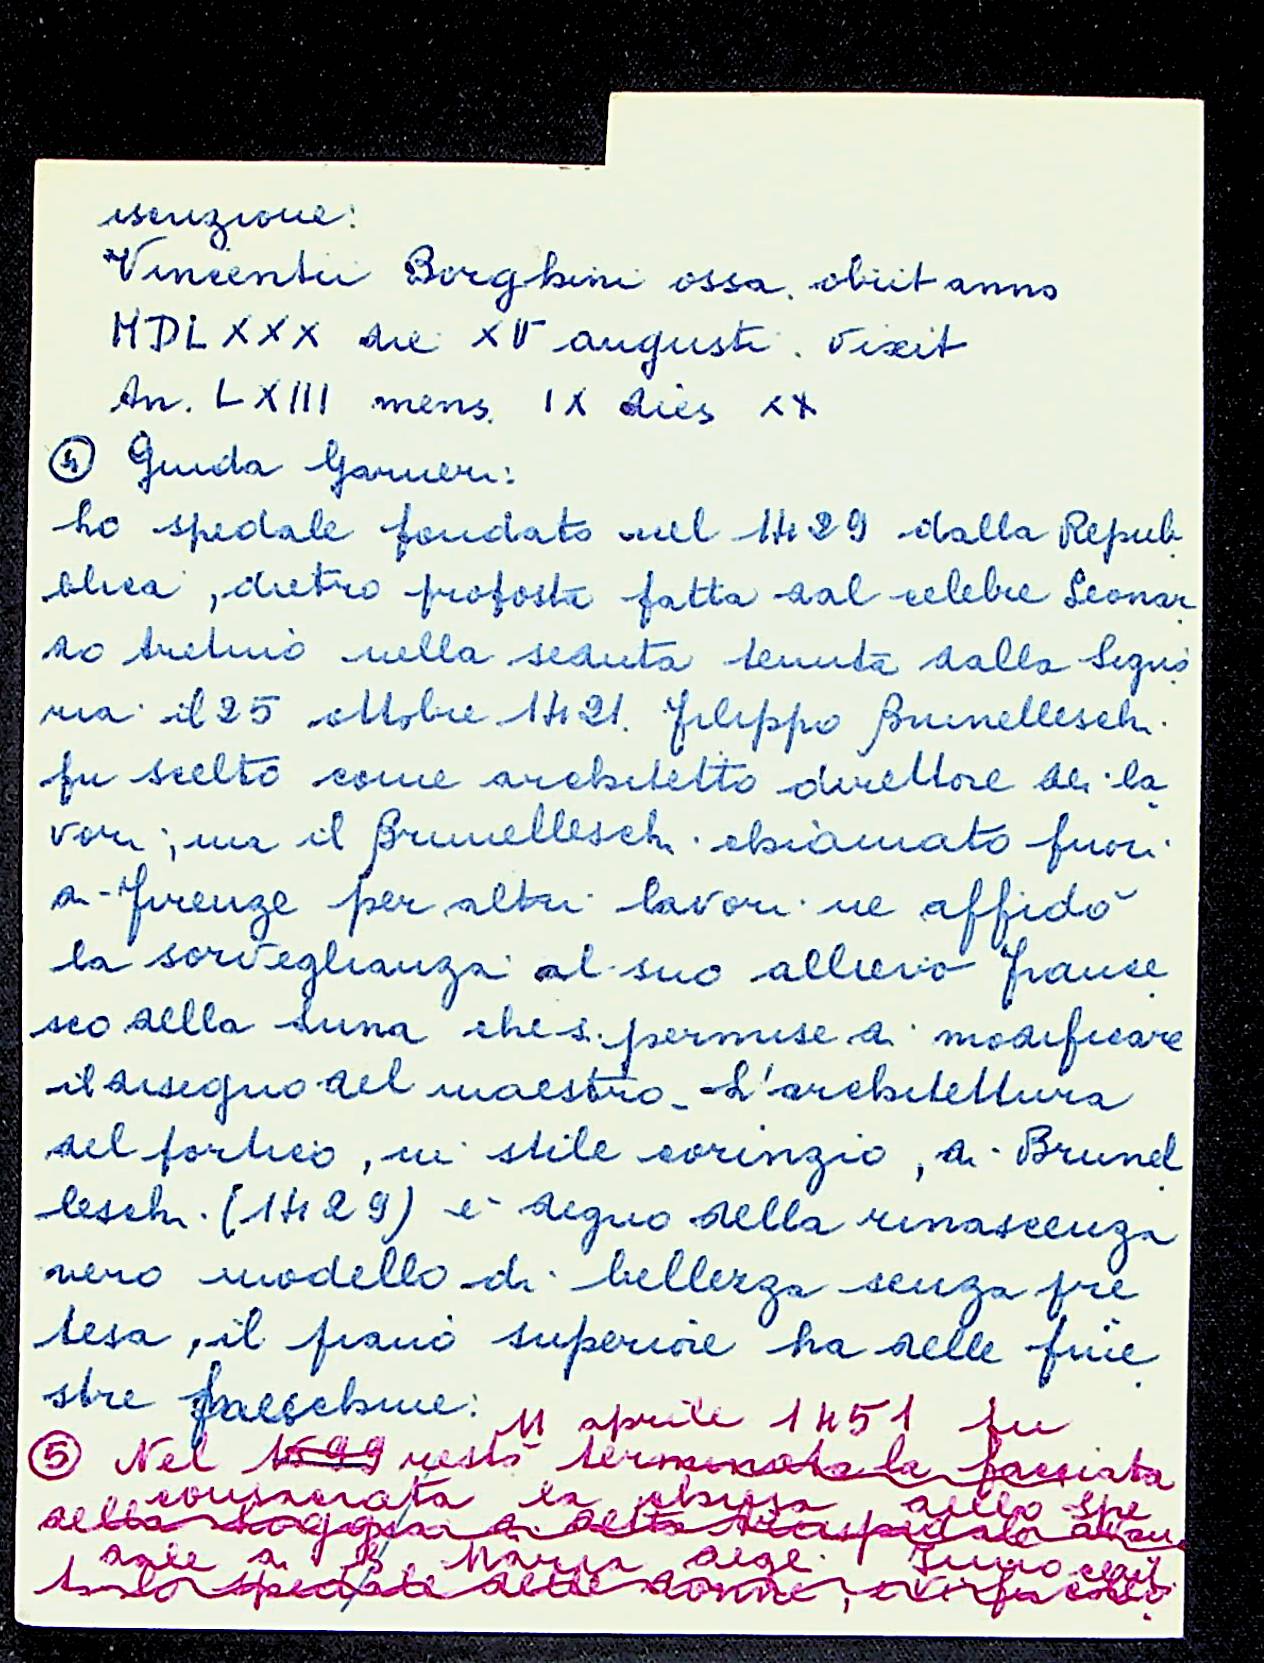 iscrizione:
Vincentii Borghini ossa. obiit anno
MDLXXX die XV augusti. vixit
An. LXIII mens. IX dies XX
④ Guida Garneri:
Lo spedale fondato nel 1429 dalla Repub
blica, dietro proposta fatta dal celebre Leonar
do Aretino nella seduta tenuta dalla Signo
ria il 25 ottobre 1421. Filippo Brunelleschi
fu scelto come architetto direttore dei la
vori; ma il Brunelleschi chiamato fuori
di Firenze per altri lavori ne affidò
la sorveglianza al suo allievo France
sco della Luna che si permise di modificare
il disegno del maestro - L'architettura
del portico, in stile corinzio, di Brunel
leschi (1429) è degno della rinascenza
vero modello di bellezza senza pre
tesa, il piano superiore ha delle fine
stre
11 aprile 1451 fu
⑤ Nel restò terminata la facciata
consacrata la chiesa dello Spe
della Loggia di detto
dale di S. Maria degl. Innocenti
lo spedale delle donne, e vi fu